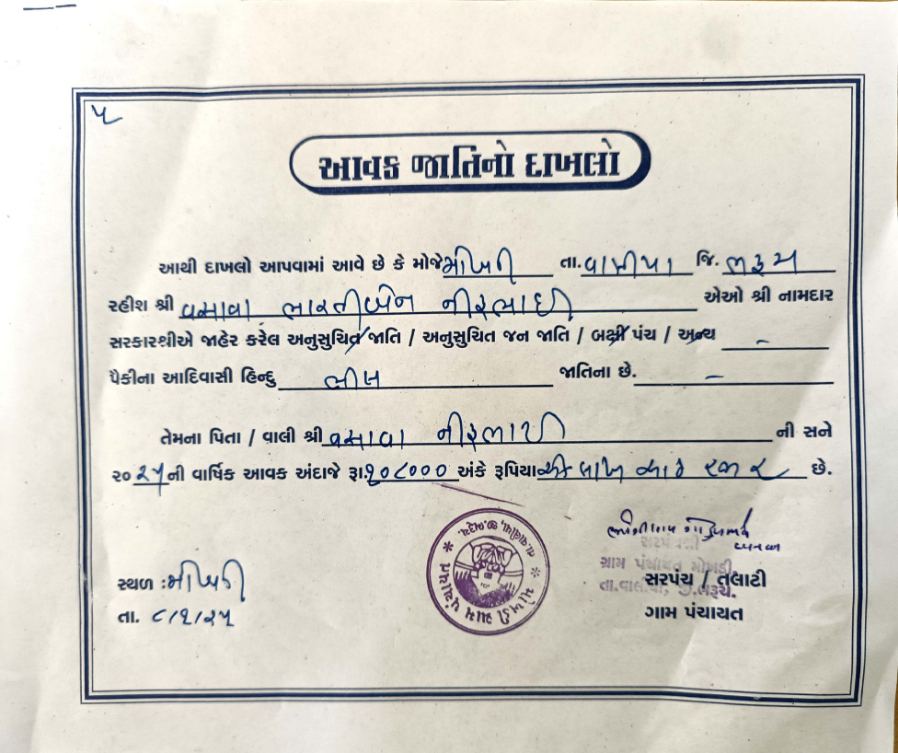 ૫
આવક જાતિનો દાખલો
આથી દાખલો આપવામાં આવે છે કે મોજે મોખડી તા. વાલીયા જિ. ભરૂચ
રહીશ શ્રી વસાવા ભારતીબેન નીરૂભાઈ એઓ શ્રી નામદાર
સરકારશ્રીએ જાહેર કરેલ અનુસુચિત જાતિ / અનુસુચિત જન જાતિ / બક્ષી પંચ / અન્ય -
પૈકીના આદિવાસી હિન્દુ ભીલ જાતિના છે. -
તેમના પિતા / વાલી શ્રી વસાવા નીરૂભાઈ ની સને
૨૦૨૫ની વાર્ષિક આવક અંદાજે રૂા. ૧૦૮૦૦૦ અંકે રૂપિયા એક લાખ આઠ હજાર છે.
સરપંચશ્રી
ગ્રામ પંચાયત મોખડી
તા.વાલીયા, જી.ભરૂચ.
મોખડી ગ્રામ પંચાયત * તા.વાલીયા, જી.ભરૂચ. *
સરપંચ / તલાટી
ગામ પંચાયત
સ્થળ : મોખડી
તા. ૮/૧/૨૫